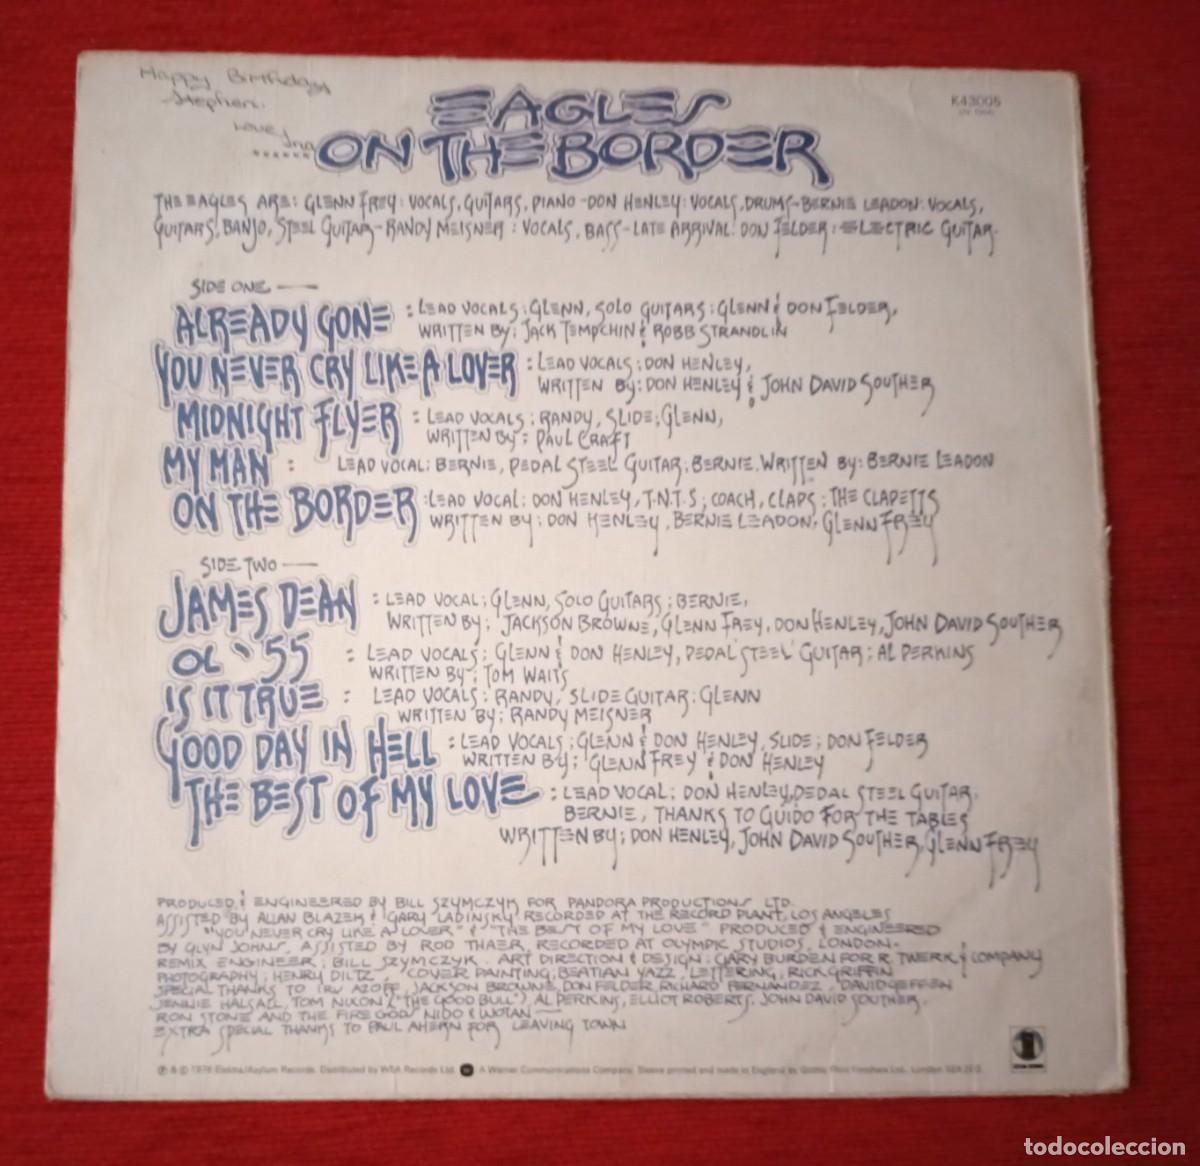 Happy Birthday
Stephen.
Love,
Ina
xxxxxx
EAGLES
ON THE BORDER
K43005
THE EAGLES ARE: GLENN FREY: VOCALS, GUITARS, PIANO - DON HENLEY: VOCALS, DRUMS - BERNIE LEADON: VOCALS,
GUITARS, BANJO, STEEL GUITAR - RANDY MEISNER: VOCALS, BASS - LATE ARRIVAL: DON FELDER: ELECTRIC GUITAR.
SIDE ONE —
ALREADY GONE : LEAD VOCALS: GLENN, SOLO GUITARS: GLENN & DON FELDER,
WRITTEN BY: JACK TEMPCHIN & ROBB STRANDLIN
YOU NEVER CRY LIKE A LOVER : LEAD VOCALS: DON HENLEY,
WRITTEN BY: DON HENLEY & JOHN DAVID SOUTHER
MIDNIGHT FLYER : LEAD VOCALS: RANDY, SLIDE: GLENN,
WRITTEN BY: PAUL CRAFT
MY MAN : LEAD VOCAL: BERNIE, PEDAL STEEL GUITAR: BERNIE. WRITTEN BY: BERNIE LEADON
ON THE BORDER : LEAD VOCAL: DON HENLEY, T.N.T.S; COACH, CLAPS: THE CLAPETTS
WRITTEN BY: DON HENLEY, BERNIE LEADON, GLENN FREY
SIDE TWO —
JAMES DEAN : LEAD VOCAL: GLENN, SOLO GUITARS: BERNIE,
WRITTEN BY: JACKSON BROWNE, GLENN FREY, DON HENLEY, JOHN DAVID SOUTHER
OL' 55 : LEAD VOCALS: GLENN & DON HENLEY, PEDAL STEEL GUITAR: AL PERKINS
WRITTEN BY: TOM WAITS
IS IT TRUE : LEAD VOCALS: RANDY, SLIDE GUITAR: GLENN
WRITTEN BY: RANDY MEISNER
GOOD DAY IN HELL : LEAD VOCALS: GLENN & DON HENLEY, SLIDE: DON FELDER
WRITTEN BY: GLENN FREY & DON HENLEY
THE BEST OF MY LOVE : LEAD VOCAL: DON HENLEY, PEDAL STEEL GUITAR:
BERNIE, THANKS TO GUIDO FOR THE TABLES
WRITTEN BY: DON HENLEY, JOHN DAVID SOUTHER, GLENN FREY
PRODUCED & ENGINEERED BY BILL SZYMCZYK FOR PANDORA PRODUCTIONS LTD.
ASSISTED BY ALLAN BLAZEK & GARY LADINSKY RECORDED AT THE RECORD PLANT, LOS ANGELES
"YOU NEVER CRY LIKE A LOVER" & "THE BEST OF MY LOVE" PRODUCED & ENGINEERED
BY GLYN JOHNS, ASSISTED BY ROD THAER, RECORDED AT OLYMPIC STUDIOS, LONDON.
REMIX ENGINEER: BILL SZYMCZYK. ART DIRECTION & DESIGN: GARY BURDEN FOR R. TWERK & COMPANY
PHOTOGRAPHY: HENRY DILTZ COVER PAINTING: BEATIAN YAZZ, LETTERING, RICK GRIFFIN
SPECIAL THANKS TO IRV AZOFF, JACKSON BROWNE, DON FELDER, RICHARD FERNANDEZ, DAVID GEFFEN
JENNIE HALSALL, TOM NIXON ("THE GOOD BULL"), AL PERKINS, ELLIOT ROBERTS, JOHN DAVID SOUTHER,
RON STONE AND THE FIRE GODS NIDO & WOTAN —
EXTRA SPECIAL THANKS TO PAUL AHERN FOR LEAVING TOWN
℗ & © 1976 Elektra/Asylum Records. Distributed by WEA Records Ltd. A Warner Communications Company. Sleeve printed and made in England by
todocoleccion